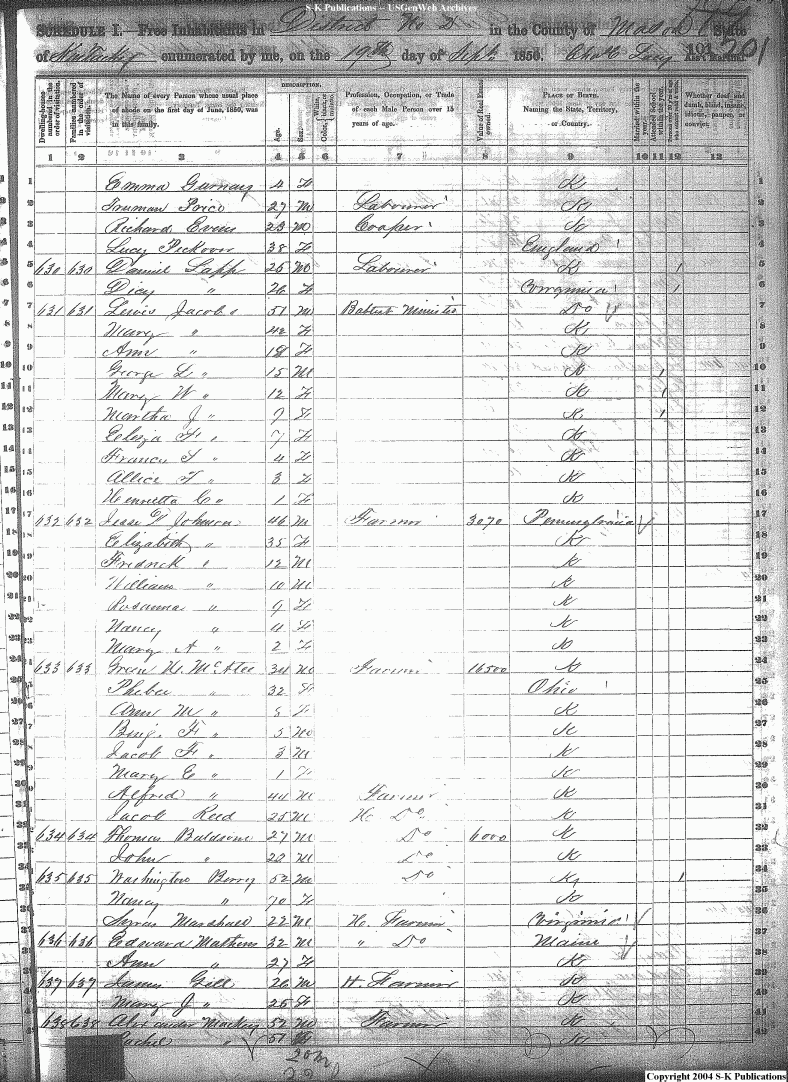 S-K Publications -- USGenWeb Archives
SCHEDULE I.—Free Inhabitants in District No 2 in the County of Mason State
of Kentucky enumerated by me, on the 19th day of Sept 1850. Ass't Marshal. 201
DESCRIPTION.
Dwelling-houses numbered in the order of visitation.
Families numbered in the order of visitation.
The Name of every Person whose usual place of abode on the first day of June, 1850, was in this family.
Age.
Sex.
Profession, Occupation, or Trade of each Male Person over 15 years of age.
Value of Real Estate owned.
PLACE OF BIRTH. Naming the State, Territory, or Country.
Married within the year.
Attended School within the year.
Whether deaf and dumb, blind, insane, idiotic, pauper, or convict.
1 2 3 4 5 6 7 8 9 10 11 12 12
1 Emma Gurnay 4 F K 1
2 Truman Price 27 M Labourer K 2
3 Richard Evens 23 M Cooper K 3
4 Lucy Pickover 38 F England 4
5 630 630 Daniel Sapp 25 M Labourer K 1 5
6 Dicy " 26 F Virginia 1 6
7 631 631 Lewis Jacobs 51 M Babtist Minister Do 7
8 Mary " 42 F K 8
9 Ann " 18 F K 9
10 George L " 15 M K 1 10
11 Mary W " 12 F K 1 11
12 Martha J " 9 F K 1 12
13 Eeliza F " 7 F K 13
14 Francis T " 4 F K 14
15 Allice T " 3 F K 15
16 Henrietta C " 1 F K 16
17 632 632 Jesse D Johnson 46 M Farmer 3070 Pennsylvania 17
18 Elizabeth " 35 F K 18
19 Fredrick " 12 M K 19
20 William " 10 M K 20
21 Rosanna " 9 F K 21
22 Nancy " 4 F K 22
23 Mary A " 2 F K 23
24 633 633 Green H. McAtee 34 M Farmer 16500 K 24
25 Pheber " 32 F Ohio 25
26 Ann M " 8 F K 26
27 Benj. F " 5 M K 27
28 Jacob F " 3 M K 28
29 Mary E " 1 F K 29
30 Alfred " 44 M Farmer K 30
31 Jacob Reed 25 M H. Do K 31
32 634 634 Thomas Baldsome 27 M Do 6000 K 32
33 John " 20 M Do K 33
34 635 635 Washington Berry 52 M Do K 1 34
35 Nancy " 70 F K 35
36 Marshall 22 M H. Farmer Virginia 36
37 636 636 Edward Mathews 32 M " Do Maine 37
38 Ann " 27 F K 38
39 637 637 James Gill 26 M H. Farmer K 39
40 Mary J " 26 F K 40
41 638 638 Alexander Mackey 52 M Farmer K 41
42 Rachel " 51 F K 42
20 M
22
Copyright 2004 S-K Publications